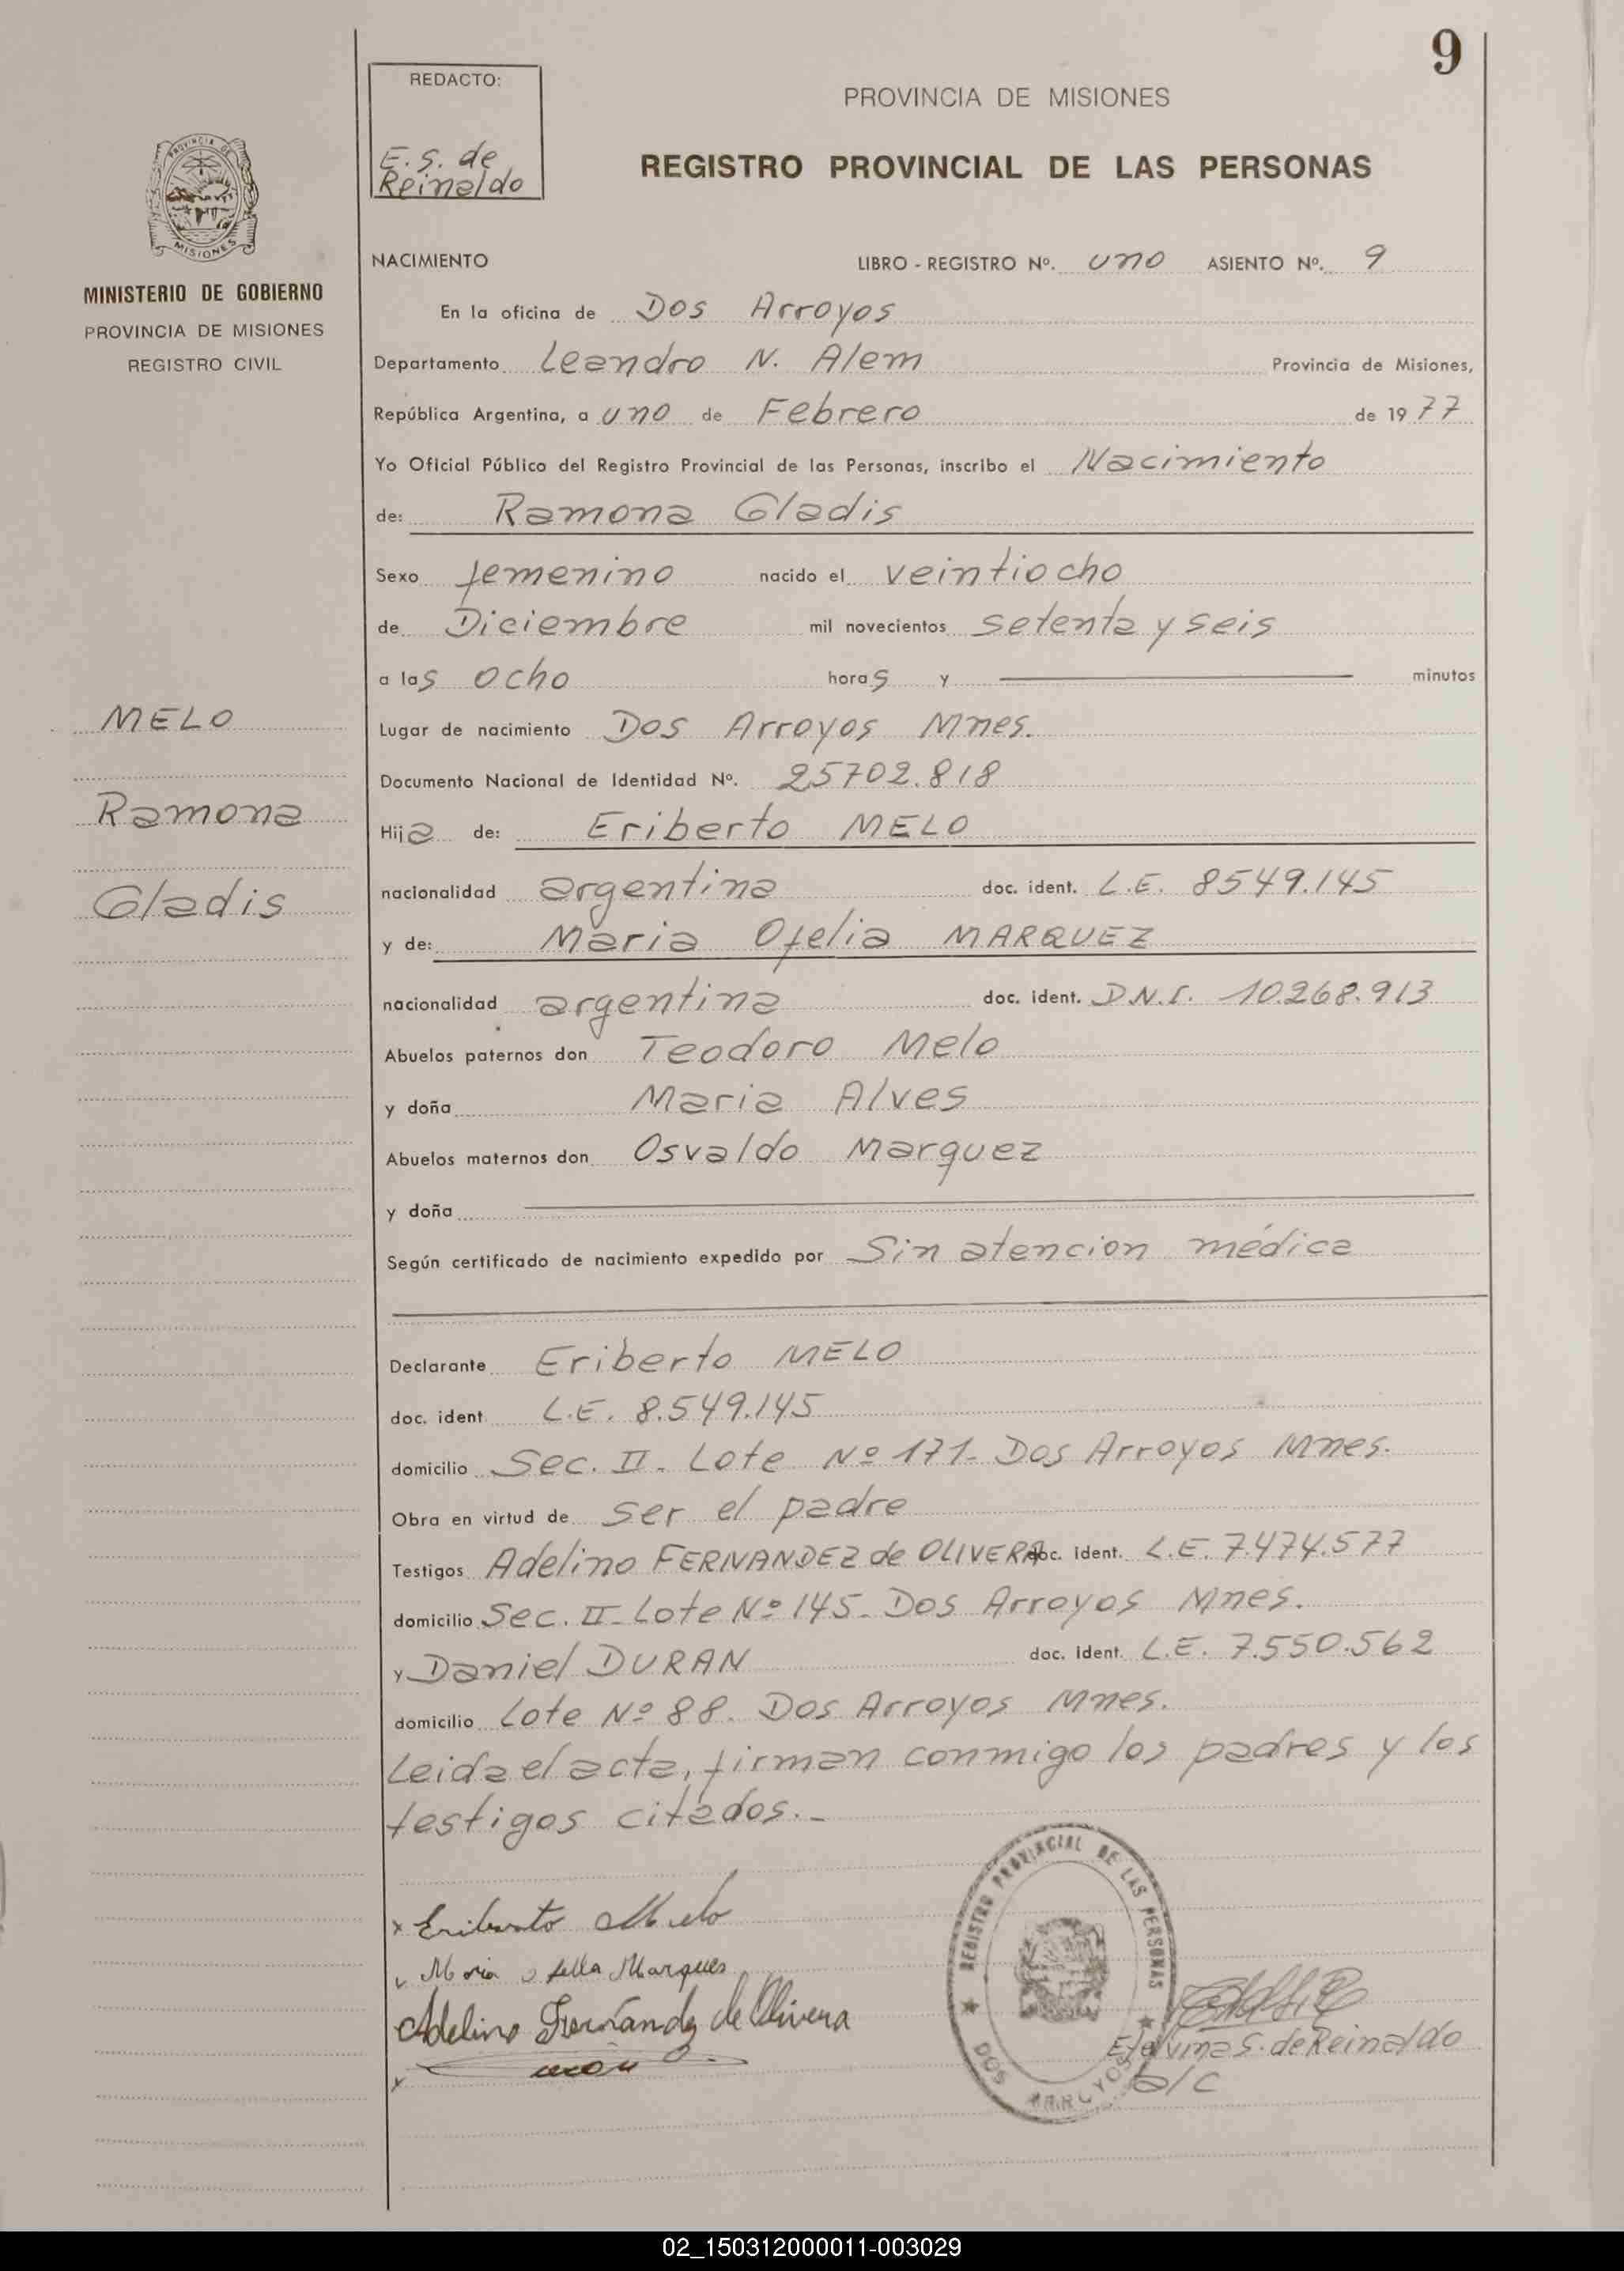 9
REDACTO:
E. S. de
Reinaldo
PROVINCIA DE MISIONES
REGISTRO PROVINCIAL DE LAS PERSONAS
PROVINCIA DE
MISIONES
MINISTERIO DE GOBIERNO
PROVINCIA DE MISIONES
REGISTRO CIVIL
MELO
Ramona
Gladis
NACIMIENTO LIBRO - REGISTRO Nº. uno ASIENTO Nº. 9
En la oficina de Dos Arroyos
Departamento Leandro N. Alem Provincia de Misiones,
República Argentina, a uno de Febrero de 1977
Yo Oficial Público del Registro Provincial de las Personas, inscribo el Nacimiento
de: Ramona Gladis
Sexo femenino nacido el veintiocho
de Diciembre mil novecientos setenta y seis
a las ocho horas y minutos
Lugar de nacimiento Dos Arroyos Mnes.
Documento Nacional de Identidad Nº. 25702.818
Hija de: Eriberto MELO
nacionalidad argentina doc. ident. L.E. 8549.145
y de: Maria Ofelia MARQUEZ
nacionalidad argentina doc. ident. D.N.I. 10.268.913
Abuelos paternos don Teodoro Melo
y doña Maria Alves
Abuelos maternos don Osvaldo Marquez
y doña
Según certificado de nacimiento expedido por Sin atencion médica
Declarante Eriberto MELO
doc. ident L.E. 8.549.145
domicilio Sec. II. Lote Nº 171- Dos Arroyos Mnes.
Obra en virtud de ser el padre
Testigos Adelino FERNANDEZ de OLIVERA doc. ident. L.E. 7.474.577
domicilio Sec. II- Lote Nº 145- Dos Arroyos Mnes.
y Daniel DURAN doc. ident. L.E. 7.550.562
domicilio Lote Nº 88. Dos Arroyos Mnes.
Leida el acta, firman conmigo los padres y los
testigos citados.-
x Eriberto Melo
Maria Marques
Adelino Fernandez de Olivera
x
REGISTRO PROVINCIAL DE LAS PERSONAS
DOS ARROYOS
S. de Reinaldo
a/c
02_150312000011-003029